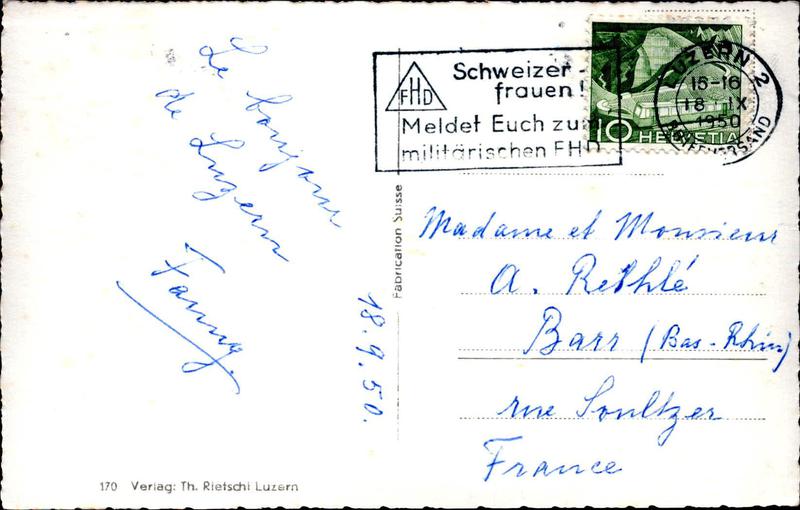 Le bonjour
de Luzern
Fanny
18.9.50.
170 Verlag: Th. Rietschi Luzern
Fabrication Suisse
FHD
Schweizer-
frauen!
Meldet Euch zum
militärischen FHD
10 HELVETIA
LUZERN 2
16-16
18 IX
1950
BRIEFVERSAND
Madame et Monsieur
A. Rethlé
Barr (Bas-Rhin)
rue Soultzer
France